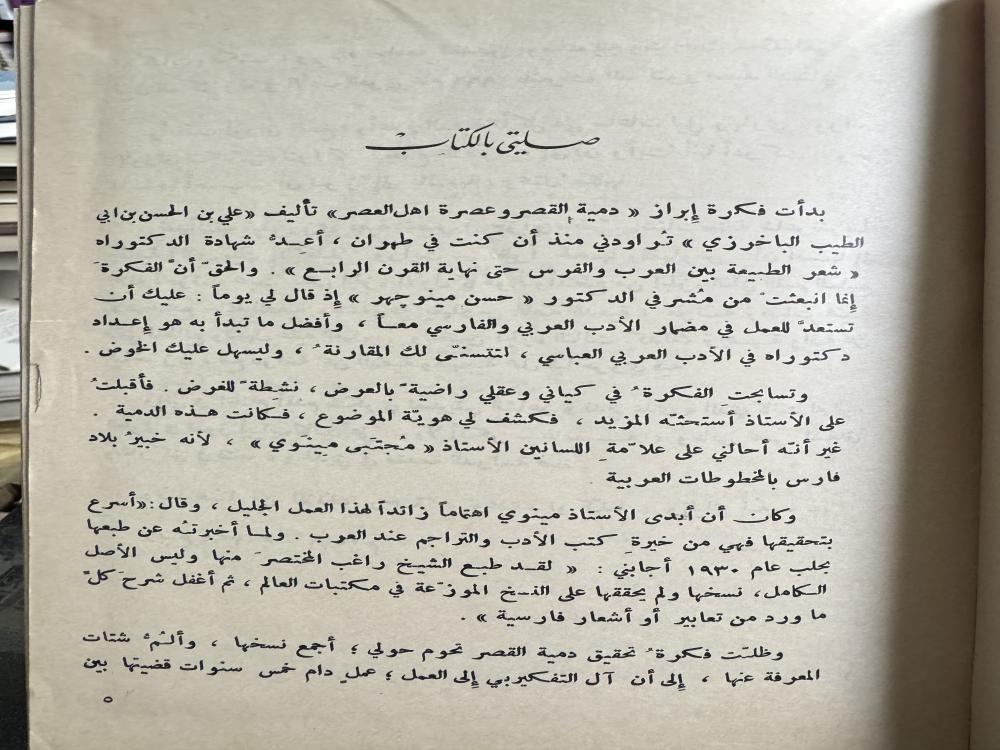 صلتي بالكتاب
بدأت فكرة إبراز « دمية القصر وعصرة اهل العصر» تأليف «علي بن الحسن بن ابي
الطيب الباخرزي » تُراودني منذ أن كنت في طهران ، أعِدُّ شهادة الدكتوراه
« شعر الطبيعة بين العرب والفرس حتى نهاية القرن الرابع » . والحقّ أنّ الفكرةَ
إنما انبعثتْ من مُشرفي الدكتور « حسن مينوچهر » إذ قال لي يوماً : عليك أن
تستعدَّ للعمل في مضمار الأدب العربي والفارسي معاً ، وأفضل ما تبدأ به هو إعداد
دكتوراه في الأدب العربي العباسي ، لتتسنّى لك المقارنةُ ، وليسهل عليك الخوض .
وتسابحت الفكرةُ في كياني وعقلي راضيةً بالعرض ، نشِطةً للغرض . فأقبلتُ
على الأستاذ أستحثّه المزيد ، فكشف لي هويّة الموضوع ، فكانت هذه الدمية .
غير أنّه أحالني على علاّمةِ اللسانين الأستاذ « مُجتَبى مينَوي » ، لأنه خبيرُ بلاد
فارس بالمخطوطات العربية
وكان أن أبدى الأستاذ مينوي اهتماماً زائداً لهذا العمل الجليل ، وقال :«أسرع
بتحقيقها فهي من خيرةِ كتب الأدب والتراجم عند العرب . ولما أخبرتُه عن طبعها
بحلب عام ١٩٣٠ أجابني : « لقد طبع الشيخ راغب المختصرَ منها وليس الأصل
الكامل ، نسخها ولم يحققها على النسخ الموزّعة في مكتبات العالم ، ثم أغفل شرحَ كلّ
ما ورد من تعابير أو أشعار فارسية » .
وظلّت فكرةُ تحقيق دمية القصر تحوم حولي ؛ أجمع نسخها ، وألمُّ شتات
المعرفة عنها ، إلى أن آل التفكيربي إلى العمل ؛ عملٍ دام خمس سنوات قضيتها بين
٥